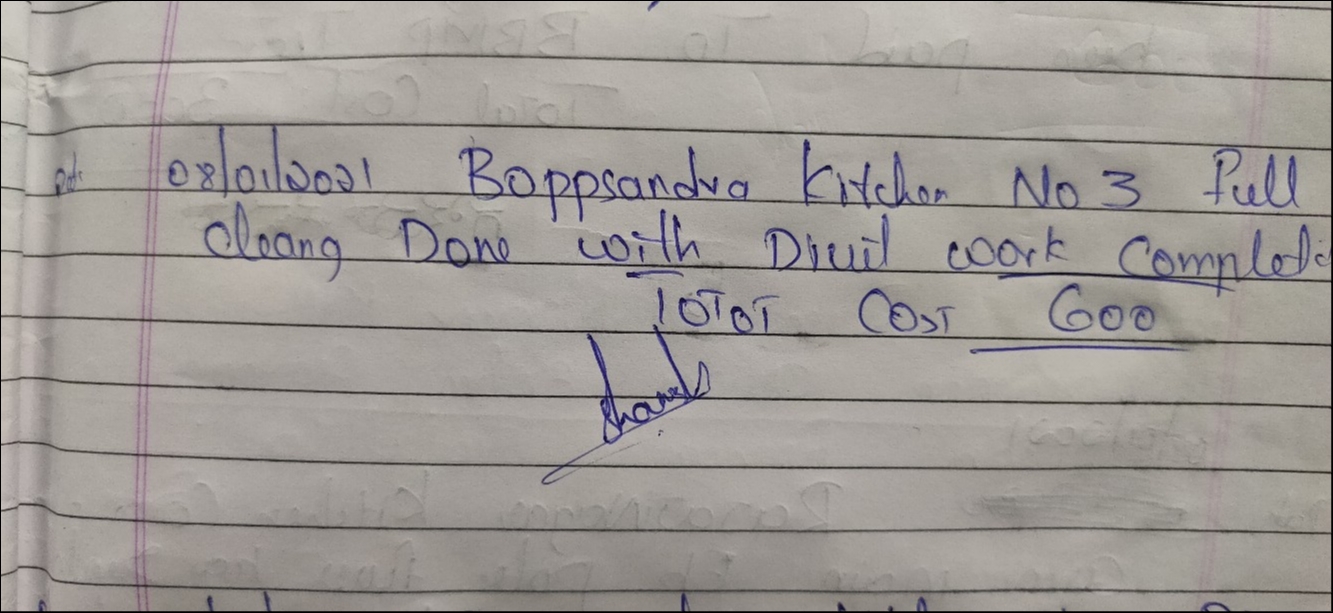 08/01/2021 Boppsandra Kitchen No 3 Full
Cleang Done with Diuil work Complete
TOTOT COST 600